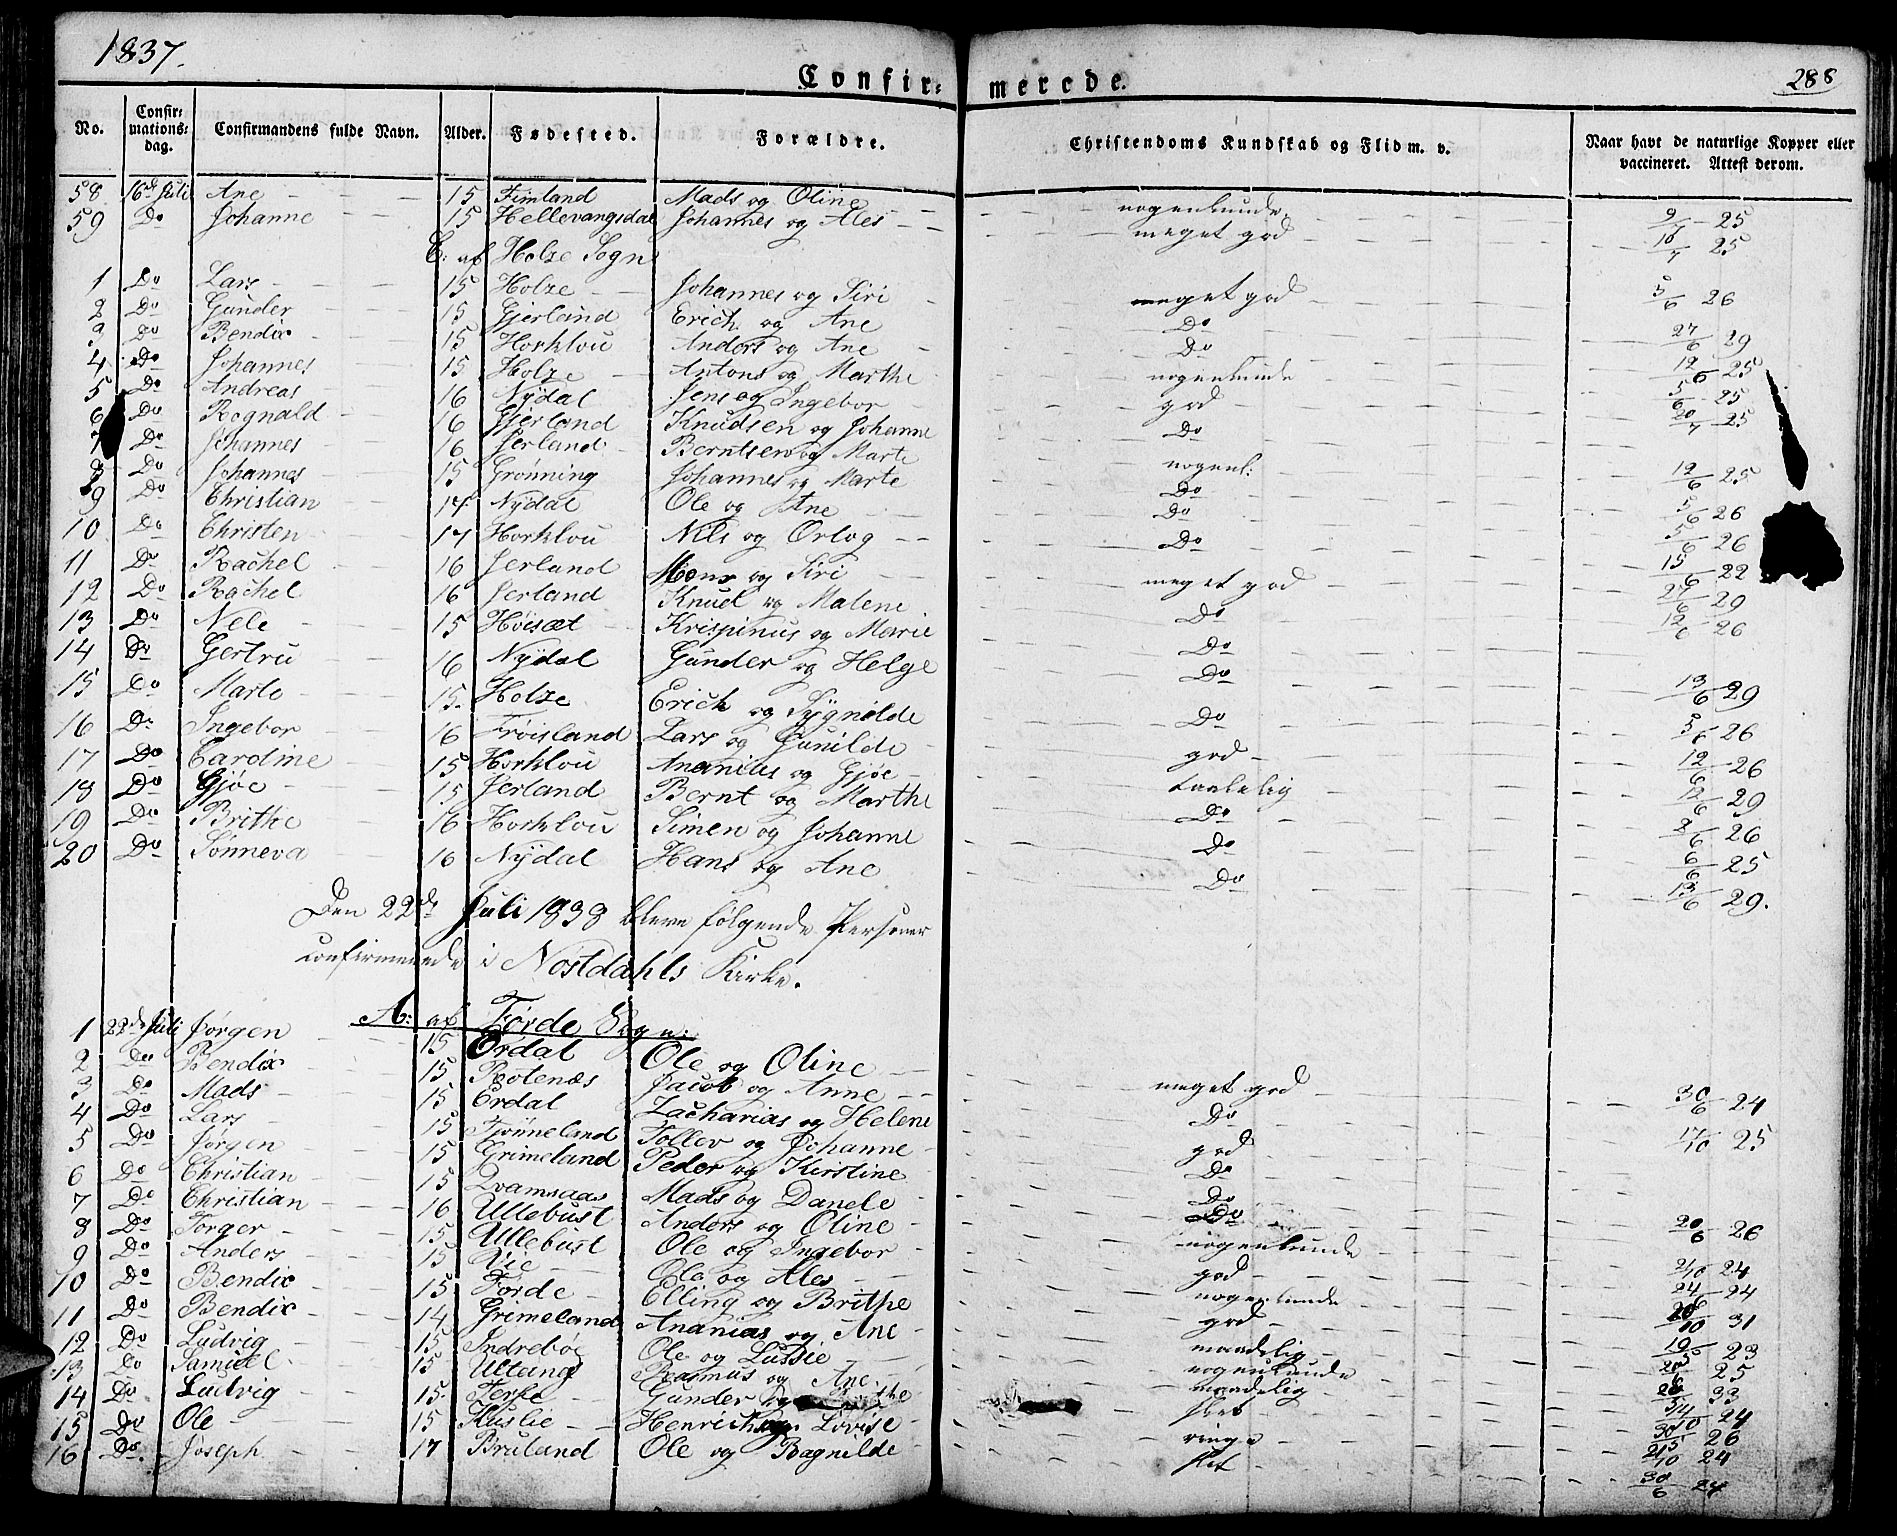 1837.
Confirmerede.
288
No. Confirmations-dag. Confirmandens fulde Navn. Alder. Fødested. Forældre. Christendoms Kundskab og Flid m. v. Naar havt de naturlige Kopper eller vaccineret. Attest derom.
58 16de Juli Ane 15 Fimland Mads og Oline nogenlunde 9/7 25
59 Do Johanne 15 Hellevangsdal Johannes og Ales meget god 18/7 25
C: af Holze Sogn
1 Do Lars 15 Holze Johannes og Siri meget god 5/6 26
2 Do Gunder 15 Gjerland Erich og Ane Do 27/6 29
3 Do Bendix 15 Horklou Anders og Ane Do 12/6 25
4 Do Johannes 15 Holze Antons og Marthe nogenlunde 5/6 25
5 Do Andreas 16 Nydal Jens og Ingebor god 20/7 25
6 Do Rognald 16 Gjerland Knudsen og Johanne Do
7 Do Johannes 16 Jerland Berntsen og Marte nogenl: 12/6 25
8 Do Johannes 15 Grønning Johannes og Marte Do 5/6 26
9 Do Christian 14 Nydal Ole og Ane Do 5/6 26
10 Do Christen 17 Horklou Nils og Orlog Do 15/6 22
11 Do Rachel 16 Jerland Mons og Siri meget god 27/6 29
12 Do Rachel 16 Jerland Knud og Malene Do 12/6 26
13 Do Nele 15 Høisæt Krispinus og Marie Do
14 Do Gertru 16 Nydal Gunder og Helge Do 13/6 29
15 Do Marte 15. Holze Erich og Sygnilde Do 5/6 26
16 Do Ingebor 16 Frøisland Lars og Gunilde god 12/6 26
17 Do Caroline 15 Horklou Ananias og Gjøe taalelig 12/6 29
18 Do Gjøe 15 Jerland Bernt og Marthe Do 8/6 26
19 Do Brithe 16 Horklou Simen og Johanne Do 6/6 25
20 Do Sønneva 16 Nydal Hans og Ane Do 13/6 29.
Den 22de Juli 1838 bleve følgende Personer
confirmerede i Nostdahls Kirke.
A: af Førde Sogn:
1 22de Juli Jørgen 15 Erdal Ole og Oline meget god 30/6 24
2 Do Bendix 15 Rotenæs Jacob og Anne Do 17/10 25
3 Do Mads 15 Erdal Zacharias og Helene god
4 Do Lars 15 Tjønneland Tollev og Johanne Do
5 Do Jørgen 15 Grimeland Peder og Kirstine Do
6 Do Christian 15 Qvamsaas Mads og Danele Do 20/6 26
7 Do Christian 16 Ullebust Anders og Oline nogenlunde
8 Do Torger 15 Ullebust Ole og Ingebor god 2/10 24
9 Do Anders 15 Vie Ole og Ales nogenlunde 24/6 24
10 Do Bendix 15 Førde Elling og Brithe god 28/10 31
11 Do Bendix 14 Grimeland Ananias og Ane maadelig 23
12 Do Ludvig 15 Indrebøe Ole og Lussie nogenlunde 25
13 Do Samuel 15 Ullang Rasmus og Ane maadelig 33
14 Do Ludvig 15 Gunder og slet 24
15 Do Ole 15 Huslie Henrich og Lovise ringe 26
16 Do Joseph 17 Bruland Ole og Ragnilde slet 24
30/6 24